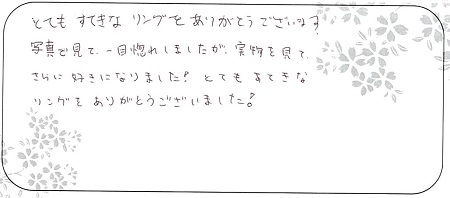 とても すてきな リングを ありがとうございます?
写真で見て、一目惚れしましたが、実物を見て、
さらに 好きになりました? とても すてきな
リングを ありがとうございました?